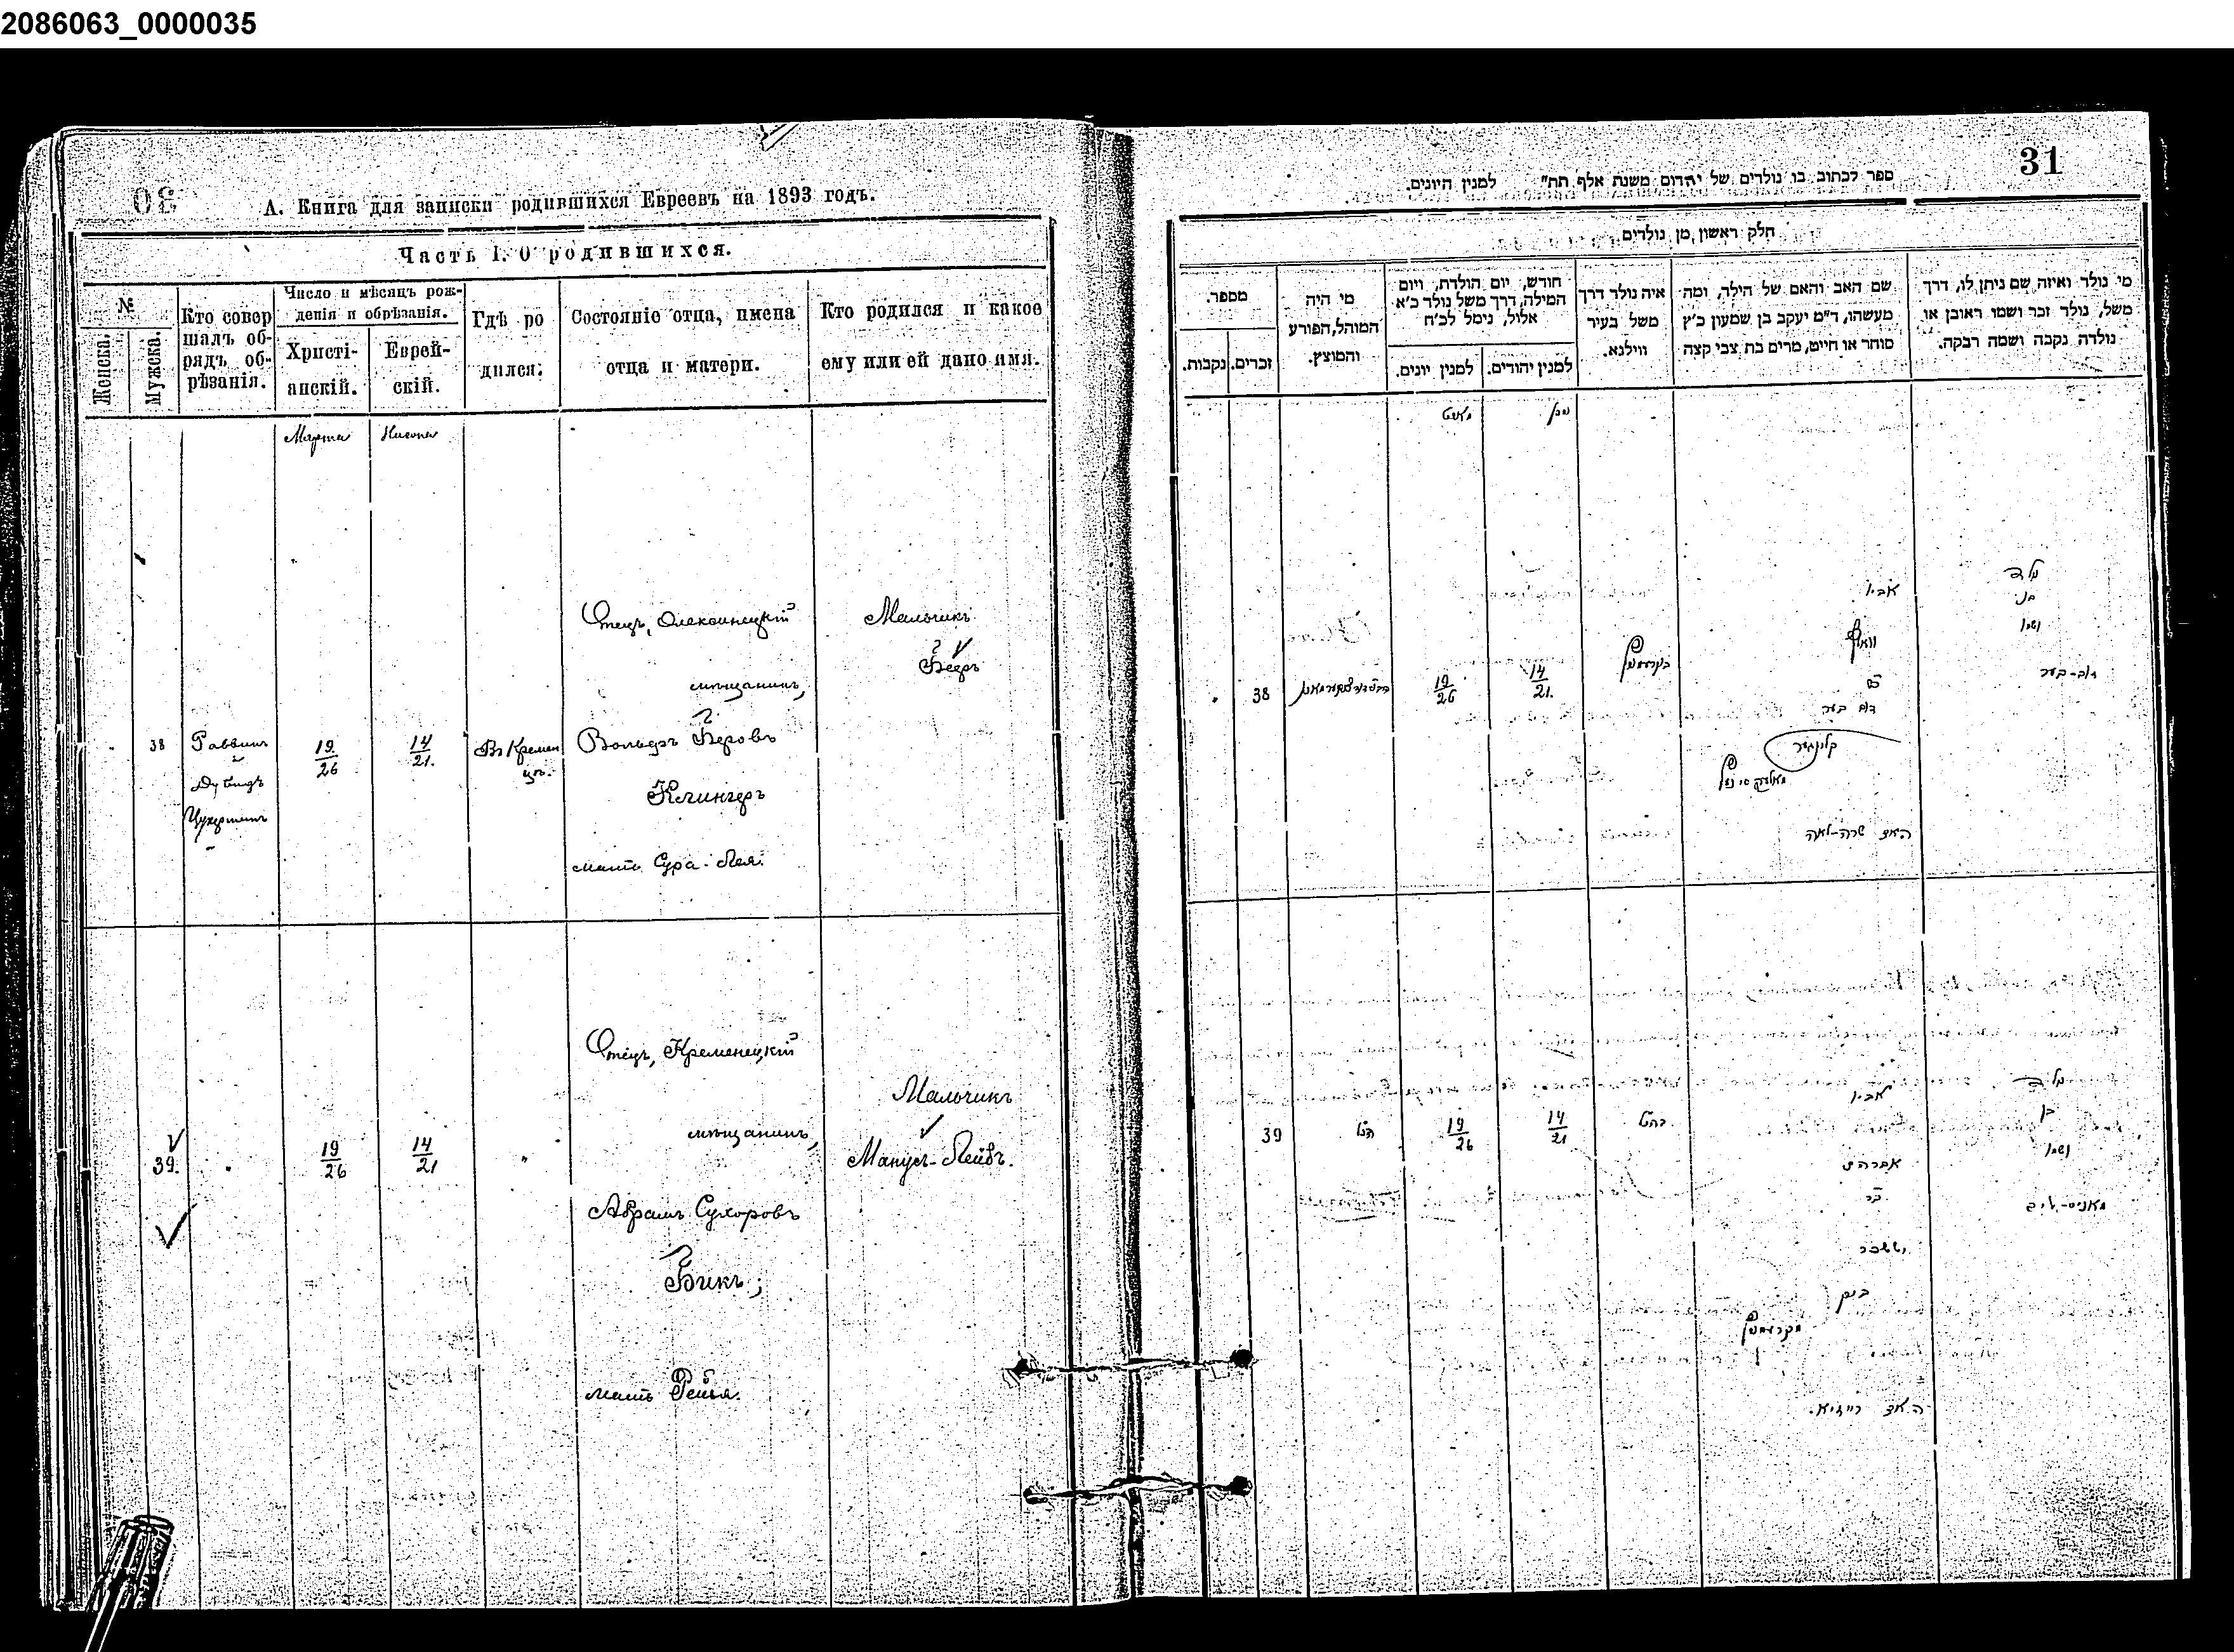 2086063_0000035
30
А. Книга для записки родившихся Евреевъ на 1893 годъ.
Часть I. О родившихся.
№
Женска.
Мужска.
Кто совер
шалъ об-
рядъ об-
рѣзанія.
Число и мѣсяцъ рож-
денія и обрѣзанія.
Христі-
анскій.
Еврей-
скій.
Гдѣ ро
дился.
Состояніе отца, имена
отца и матери.
Кто родился и какое
ему или ей дано имя.
Марта
Нисона
38
Раввинъ
Дувидъ
Цукерманъ
19
26
14
21.
Въ Кремен
цѣ.
Отецъ, Олексинецкій
мѣщанинъ,
Вольфъ Беровъ
Клингеръ
мать Сура-Лея.
Мальчикъ
Беръ
39.
19
26
14
21
"
Отецъ, Кременецкій
мѣщанинъ,
Абрамъ Сухоровъ
Бикъ;
мать Рейзя.
Мальчикъ
Манусъ-Лейбъ.
31
ספר לכתוב בו נולדים של יהדום משנת אלף תת״ למנין היונים.
חלק ראשון מן נולדים
מי נולד ואיזה שם ניתן לו, דרך
משל, נולד זכר ושמו ראובן או
נולדה נקבה ושמה רבקה.
שם האב והאם של הילד, ומה
מעשהו, ד״מ יעקב בן שמעון כ״ץ
סוחר או חייט, מרים בת צבי קצה
איה נולד דרך
משל בעיר
ווילנא.
חודש, יום הולדת, ויום
המילה, דרך משל נולד כ׳א
אלול, נימל לכ׳ח
למנין יהודים.
למנין יונים.
מי היה
המוהל, הפורע
והמוצץ.
מספר.
זכרים.
נקבות.
ניסן
מארט
נולד
בן
ושמו
דוב-בער
אביו
וואלף
ב״ר
דוב בער
קלינגער
האם שרה-לאה
בקרעמניץ
14
21.
19
26
38
נולד
בן
ושמו
מאניס-ליב
אביו
אברהם
ב״ר
יששכר
ביק
מקרעמניץ
האם רייזיא.
כהנ״ל
14
21
19
26
הנ״ל
39